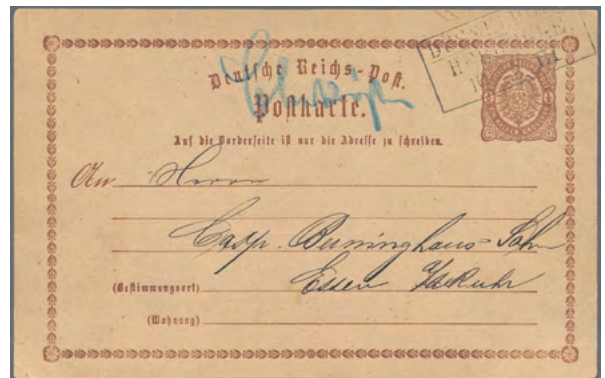 Deutsche Reichs-Post.
Postkarte.
Auf die Vorderseite ist nur die Adresse zu schreiben.
An Herrn
Casp. Berninghaus-Sohn
Essen a/d Ruhr
(Bestimmungsort)
(Wohnung)